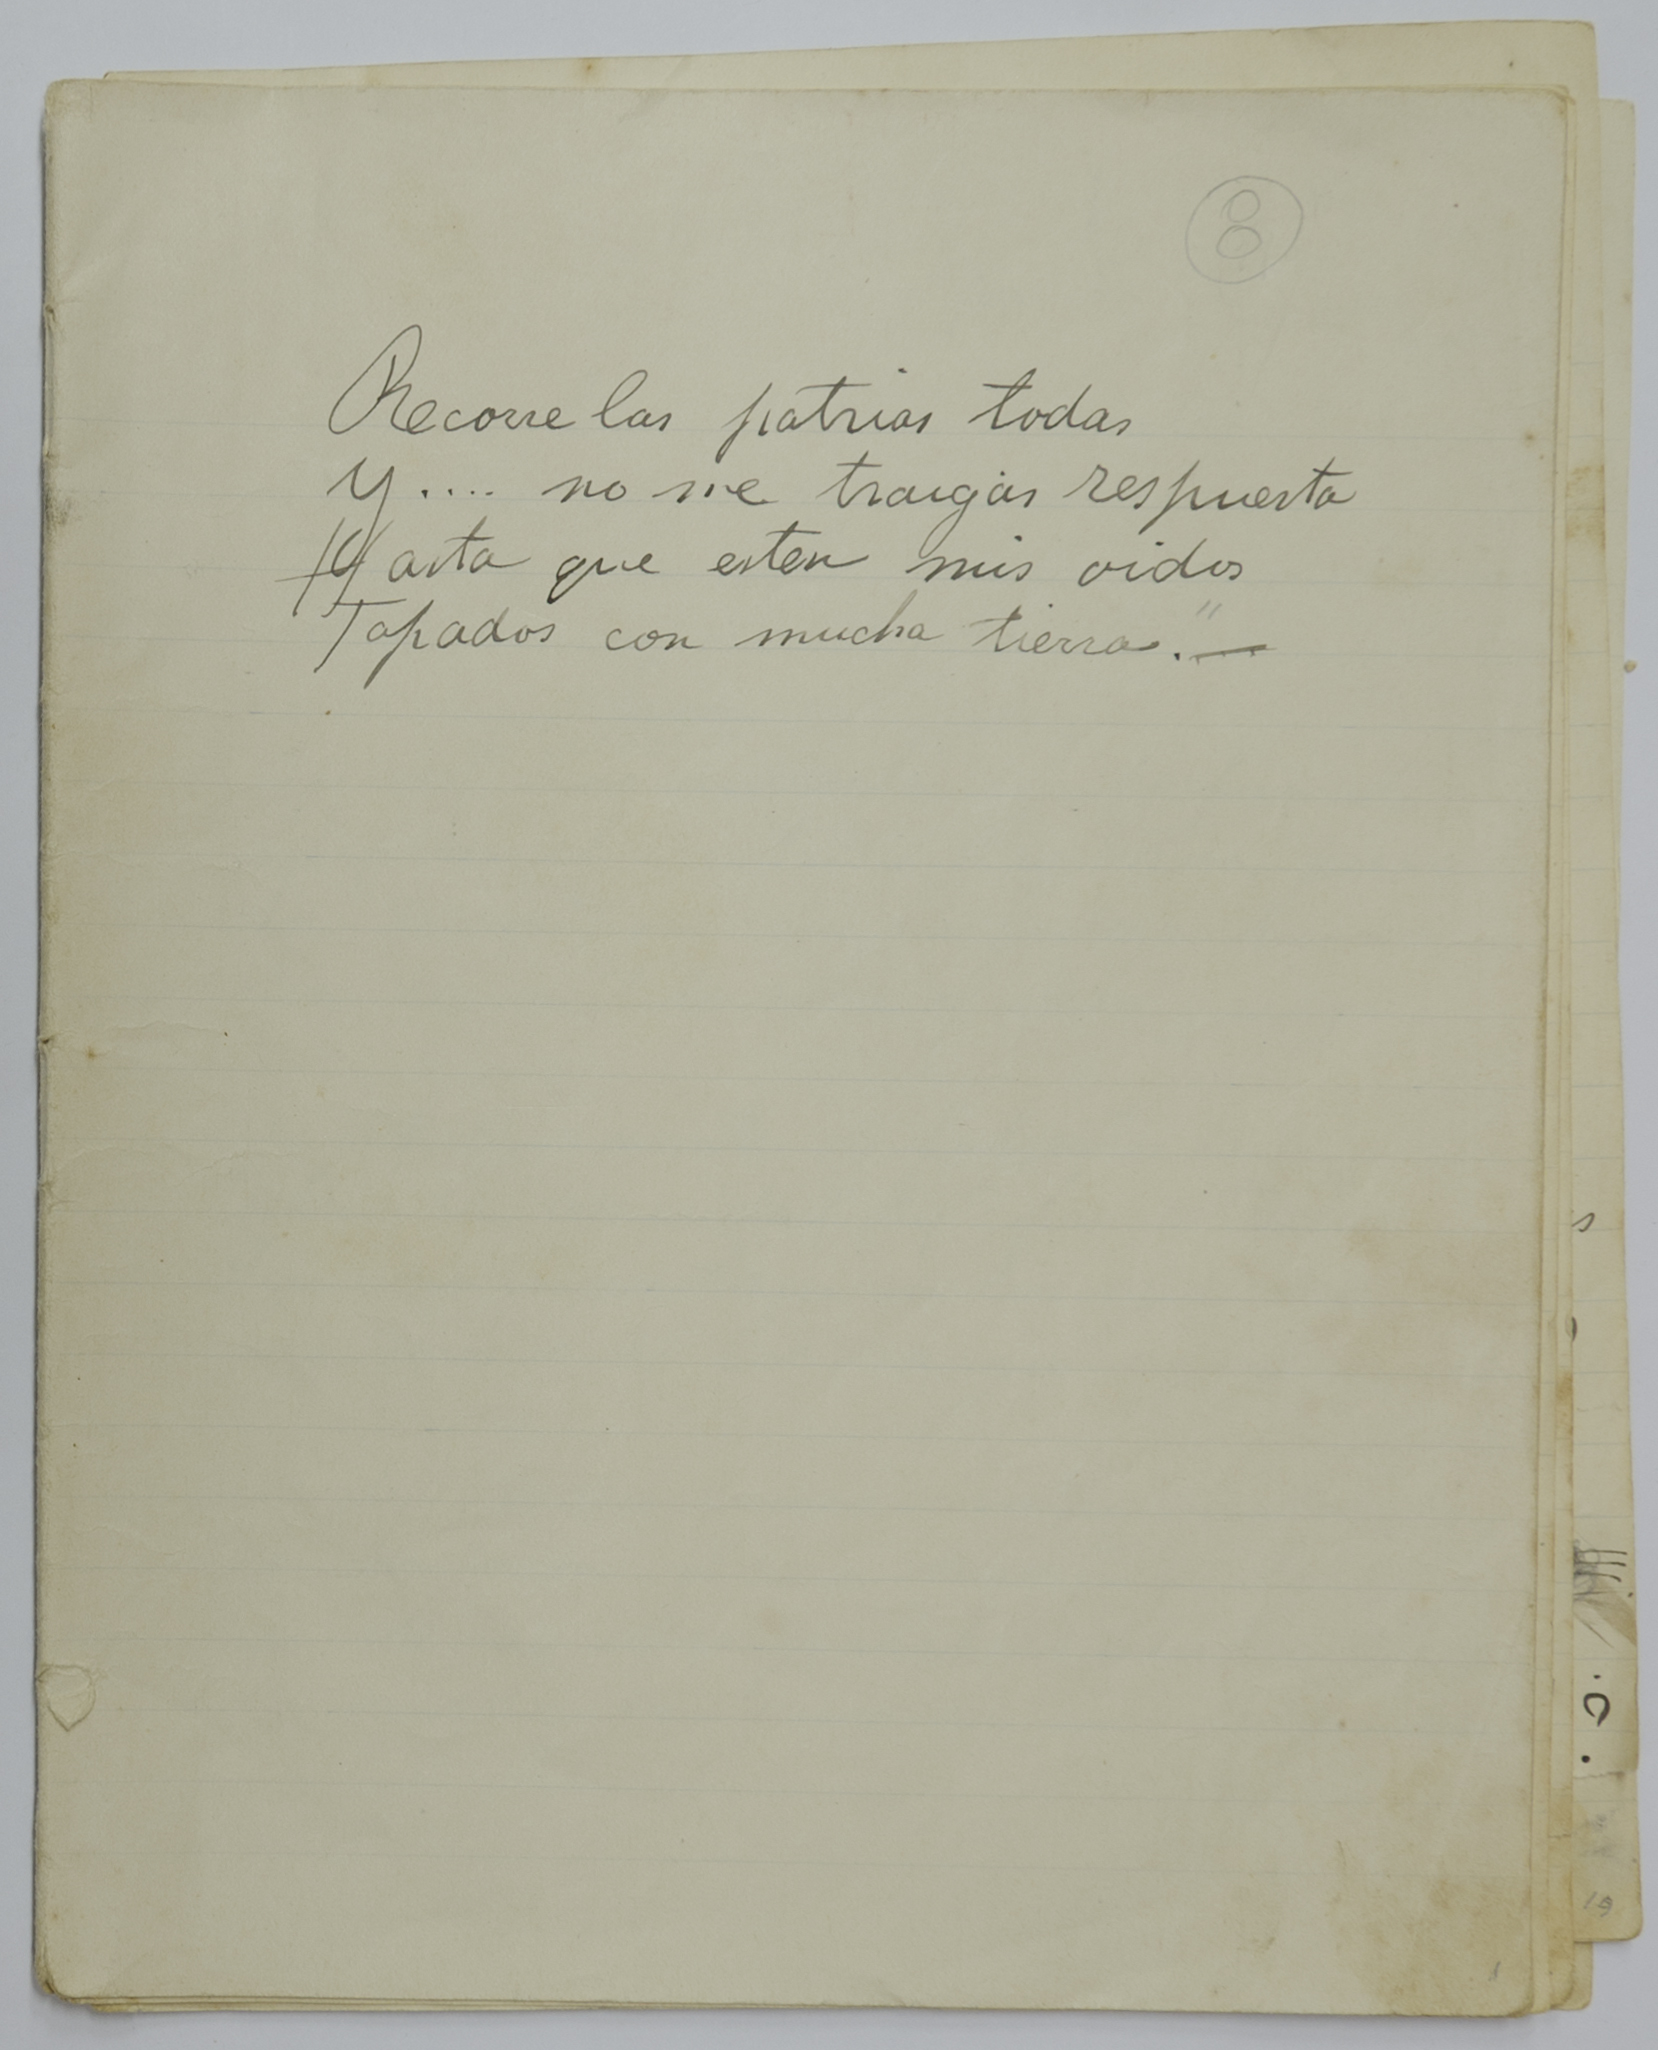 8
Recorre las patrias todas
Y.... no me traigas respuesta
Hasta que esten mis oidos
Tapados con mucha tierra."—
s
19
1